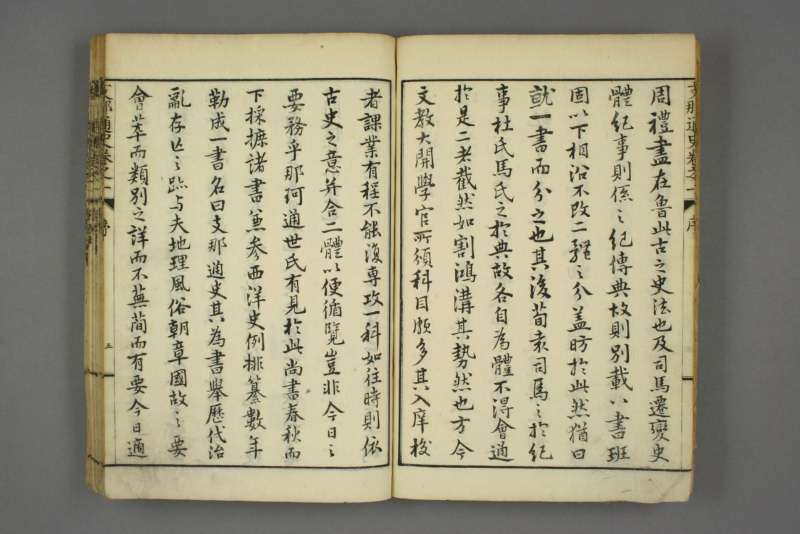 周禮盡在魯此古之史法也及司馬遷變史
體紀事則係之紀傳典故則別載八書班
固以下相沿不改二體之分蓋昉於此然猶曰
就一書而分之也其後荀袁司馬之於紀
事杜氏馬氏之於典故各自為體不得會通
於是二者截然如割鴻溝其勢然也方今
文教大開學官所頒科目頗多其入庠校
者課業有程不能復專攻一科如往時則依
古史之意并合二體以便循覽豈非今日之
要務乎那珂通世氏有見於此尚書春秋而
下採摭諸書兼參西洋史例排纂數年
勒成一書名曰支那通史其為書舉歷代治
亂存亡之跡與夫地理風俗朝章國故之要
會萃而類別之詳而不蕪簡而有要今日通
支那通史卷之一
序
五